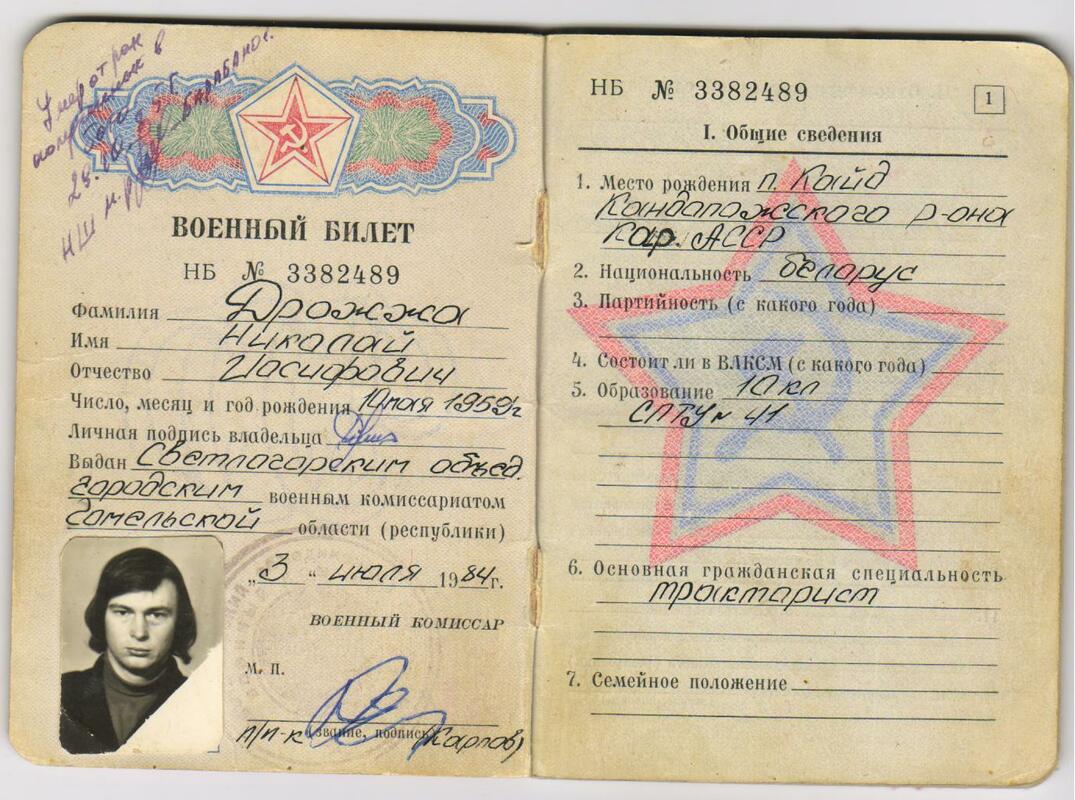 28.
НШ
ВОЕННЫЙ БИЛЕТ
НБ № 3382489
Фамилия Дрожжа
Имя Николай
Отчество Иосифович
Число, месяц и год рождения 10 мая 1959 г
Личная подпись владельца
Выдан Светлогорским объед.
городским военным комиссариатом
Гомельской области (республики)
„3“ июля 1984 г.
ВОЕННЫЙ КОМИССАР
М. П.
п/п-к (звание, подпись) (Карпов)
НБ № 3382489
1
I. Общие сведения
1. Место рождения п. Кайд
Кандапожского р-она
Кар. АССР
2. Национальность беларус
3. Партийность (с какого года)
4. Состоит ли в ВЛКСМ (с какого года)
5. Образование 10 кл
СПТУ № 41
6. Основная гражданская специальность
тракторист
7. Семейное положение